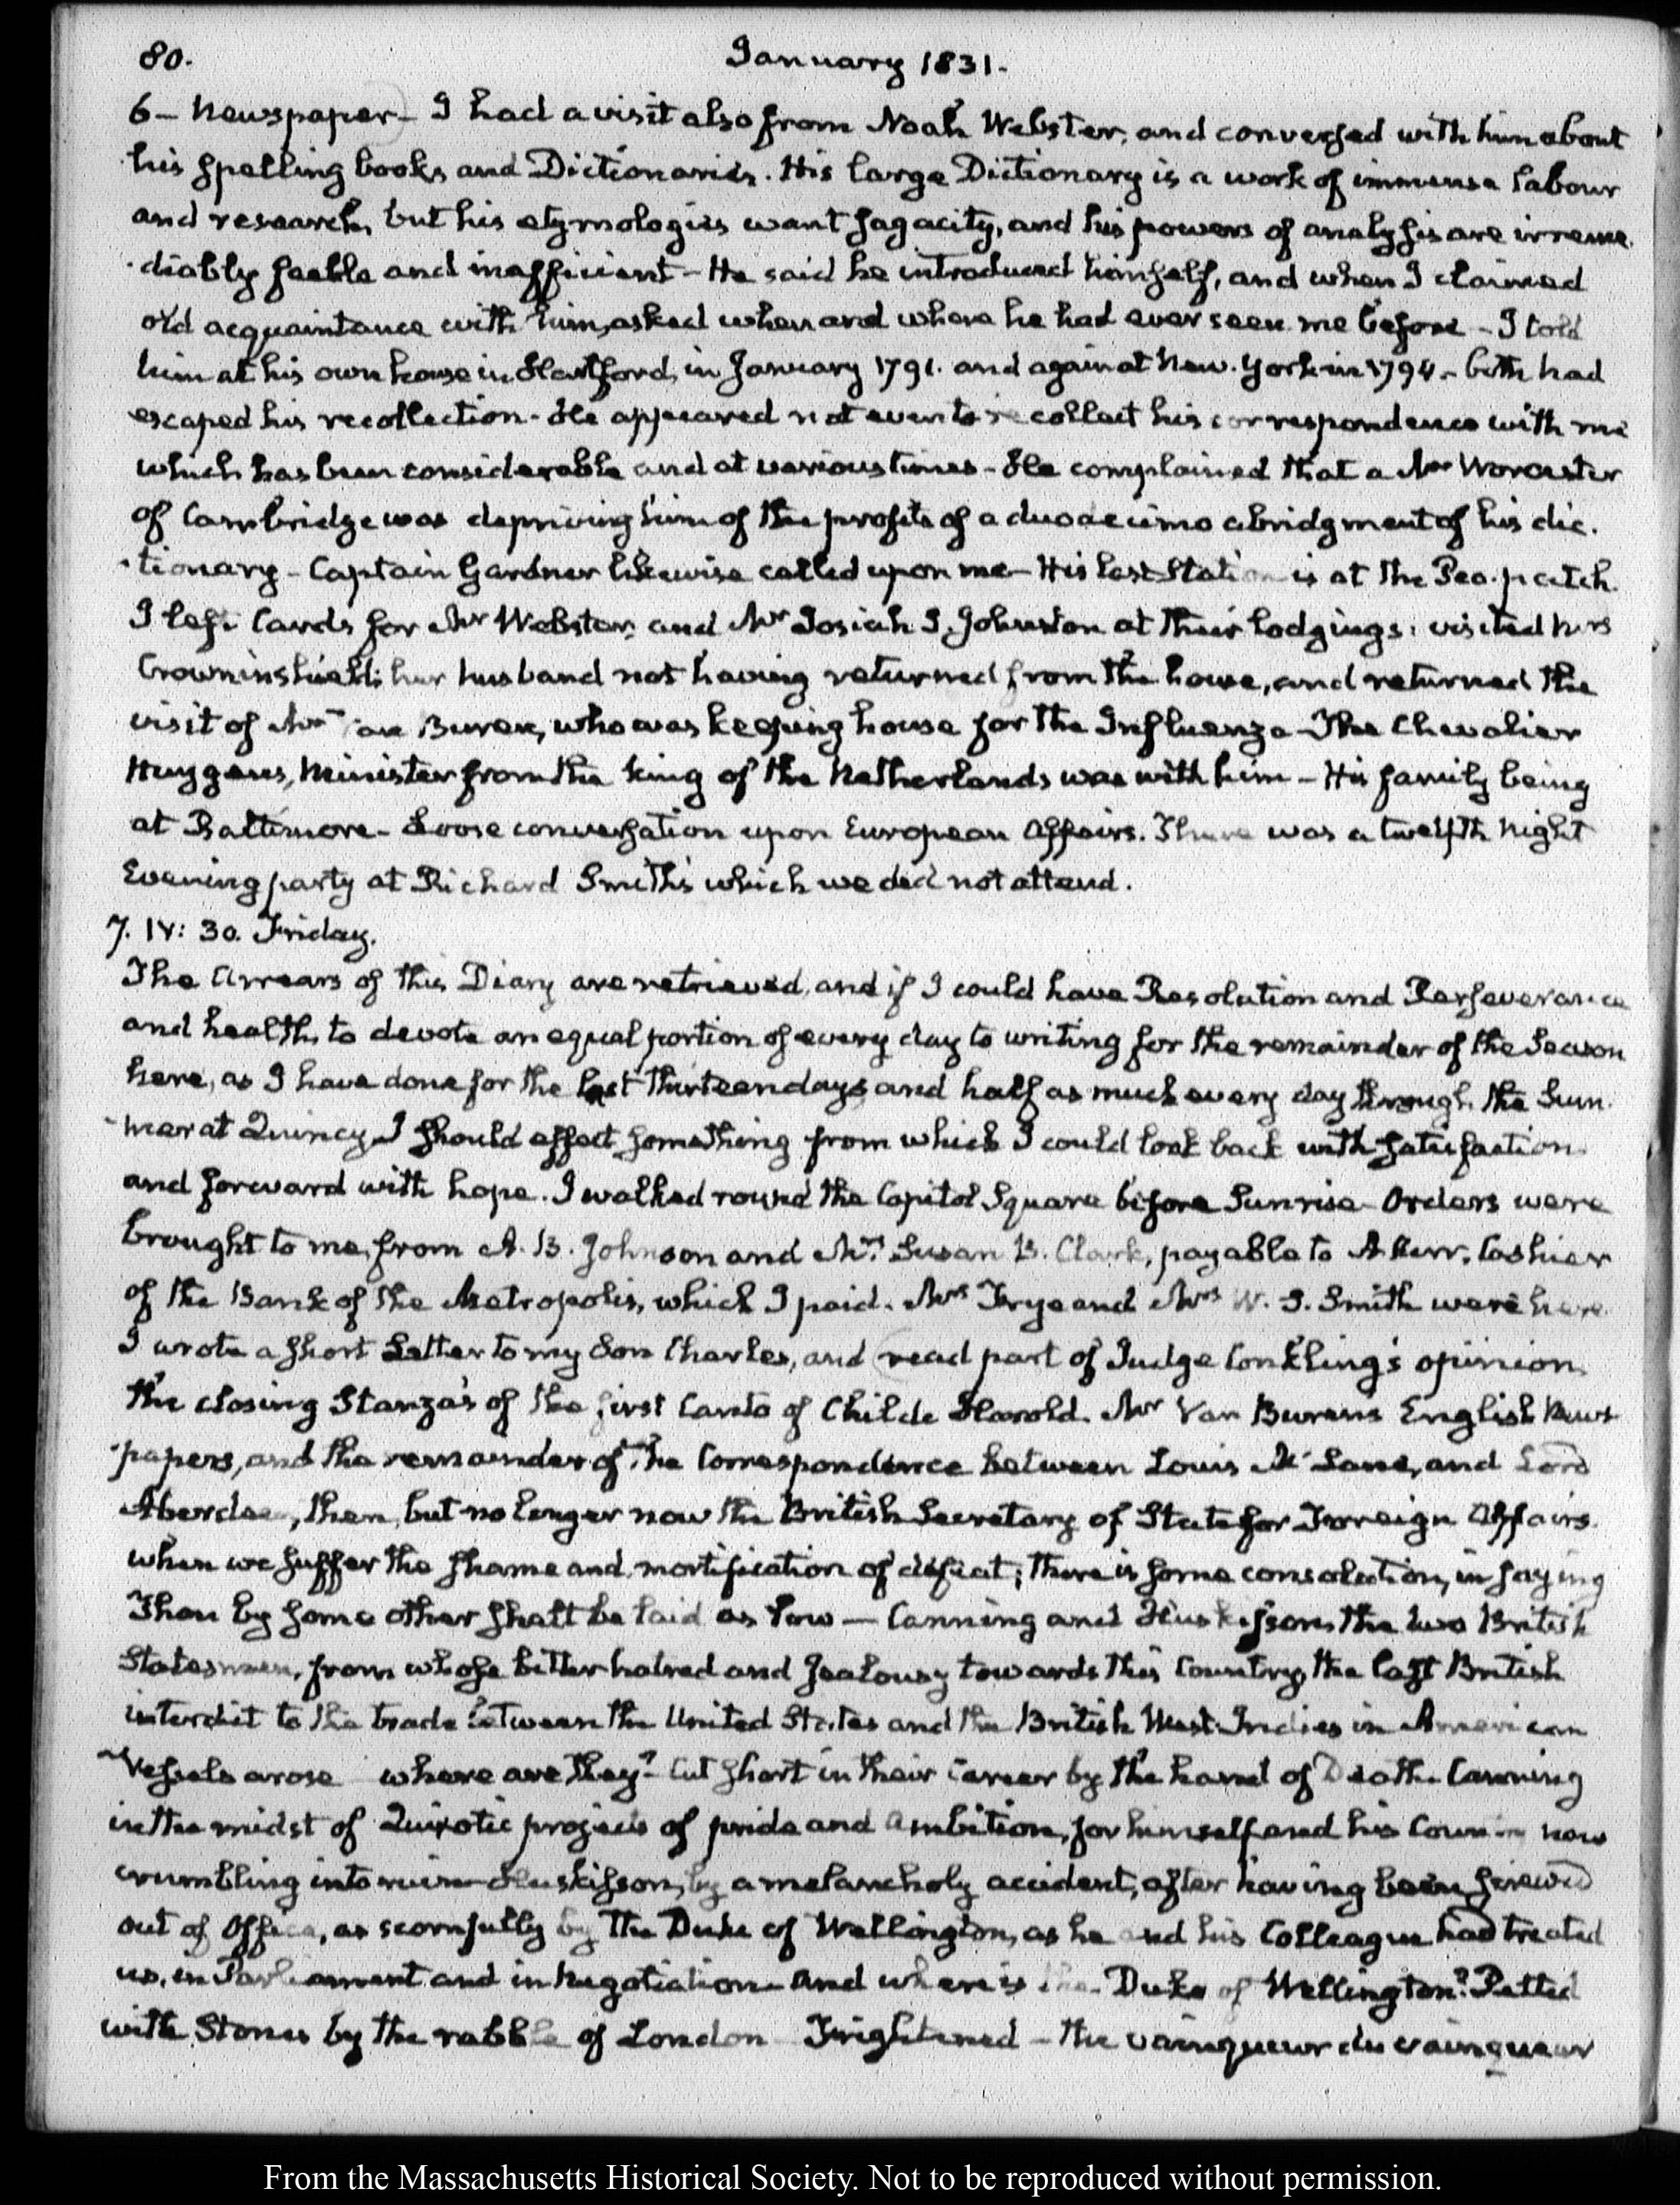 80.
January 1831.
6 – Newspaper – I had a visit also from Noah Webster, and conversed with him about
his spelling books and Dictionaries. His large Dictionary is a work of immense labour
and research, but his etymologies want sagacity, and his powers of analysis are irreme-
diably feeble and inefficient – He said he introduced himself, and when I claimed
old acquaintance with him, asked when and where he had ever seen me before – I told
him at his own house in Hartford, in January 1791. and again at New-York in 1794 – both had
escaped his recollection – He appeared not even to recollect his correspondence with me
which has been considerable and at various times – He complained that a Mr Worcester
of Cambridge was depriving him of the profits of a duodecimo abridgment of his dic-
tionary – Captain Gardner likewise called upon me – His last Station is at the Pea-patch.
I left Cards for Mr Webster, and Mr Josiah S. Johnston at their lodgings; visited Mrs
Crowninshield; her husband not having returned from the house, and returned the
visit of Mr Van Buren, who was keeping house for the Influenza – The Chevalier
Huygens, Minister from the King of the Netherlands was with him – His family being
at Baltimore – Loose conversation upon European Affairs. There was a twelfth Night
Evening party at Richard Smith's which we did not attend.
7. IV: 30. Friday.
The Arrears of this Diary are retrieved, and if I could have Resolution and Perseverance
and health, to devote an equal portion of every day to writing for the remainder of the Season
here, as I have done for the last thirteen days, and half as much every day through the Sum-
mer at Quincy I should effect something from which I could look back with satisfaction
and forward with hope. I walked round the Capitol Square before Sunrise – Orders were
brought to me, from A. B. Johnson and Mrs Susan B. Clark, payable to A Kerr, Cashier
of the Bank of the Metropolis, which I paid. Mrs Frye and Mrs W. S. Smith were here
I wrote a short Letter to my Son Charles, and read part of Judge Conkling's opinion
the closing Stanza's of the first Canto of Childe Harold. Mr Van Buren's English News-
papers, and the remainder of the Correspondence between Louis McLane, and Lord
Aberdeen, then, but no longer now the British Secretary of State for Foreign Affairs.
when we suffer the shame and mortification of defeat, there is some consolation, in saying
Thou by some other shalt be laid as low — Canning and Huskisson, the two British
Statesmen, from whose bitter hatred and jealousy towards this Country, the last British
interdict to the trade between the United States and the British West-Indies in American
Vessels arose where are they? Cut short in their career by the hand of Death. Canning
in the midst of Quixotic projects of pride and ambition, for himself and his Country now
crumbling into ruin – Huskisson, by a melancholy accident, after having been
out of Office, as scornfully by the Duke of Wellington, as he and his Colleague had treated
us, in Parliament and in Negotiation – And where is the Duke of Wellington? Pelted
with Stones by the rabble of London – Frightened – the vainqueur du vainqueur
From the Massachusetts Historical Society. Not to be reproduced without permission.